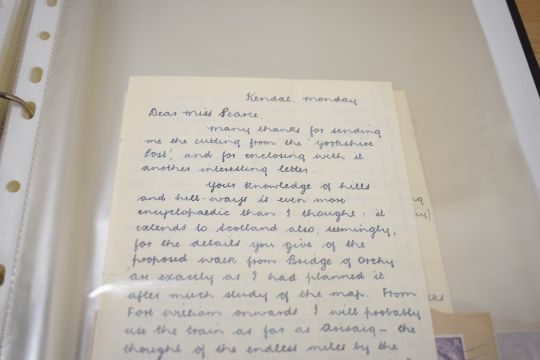 Kendal, monday
Dear Miss Pearce,
many thanks for sending
me the cutting from the 'Yorkshire
Post', and for enclosing with it
another interesting letter.
Your knowledge of hills
and hill-ways is even more
encyclopaedic than I thought: it
extends to Scotland also, seemingly,
for the details you give of the
proposed walk from Bridge of Orchy
are exactly as I had planned it
after much study of the map. From
Fort William onwards I will probably
use the train as far as Arisaig — the
thought of the endless miles by the